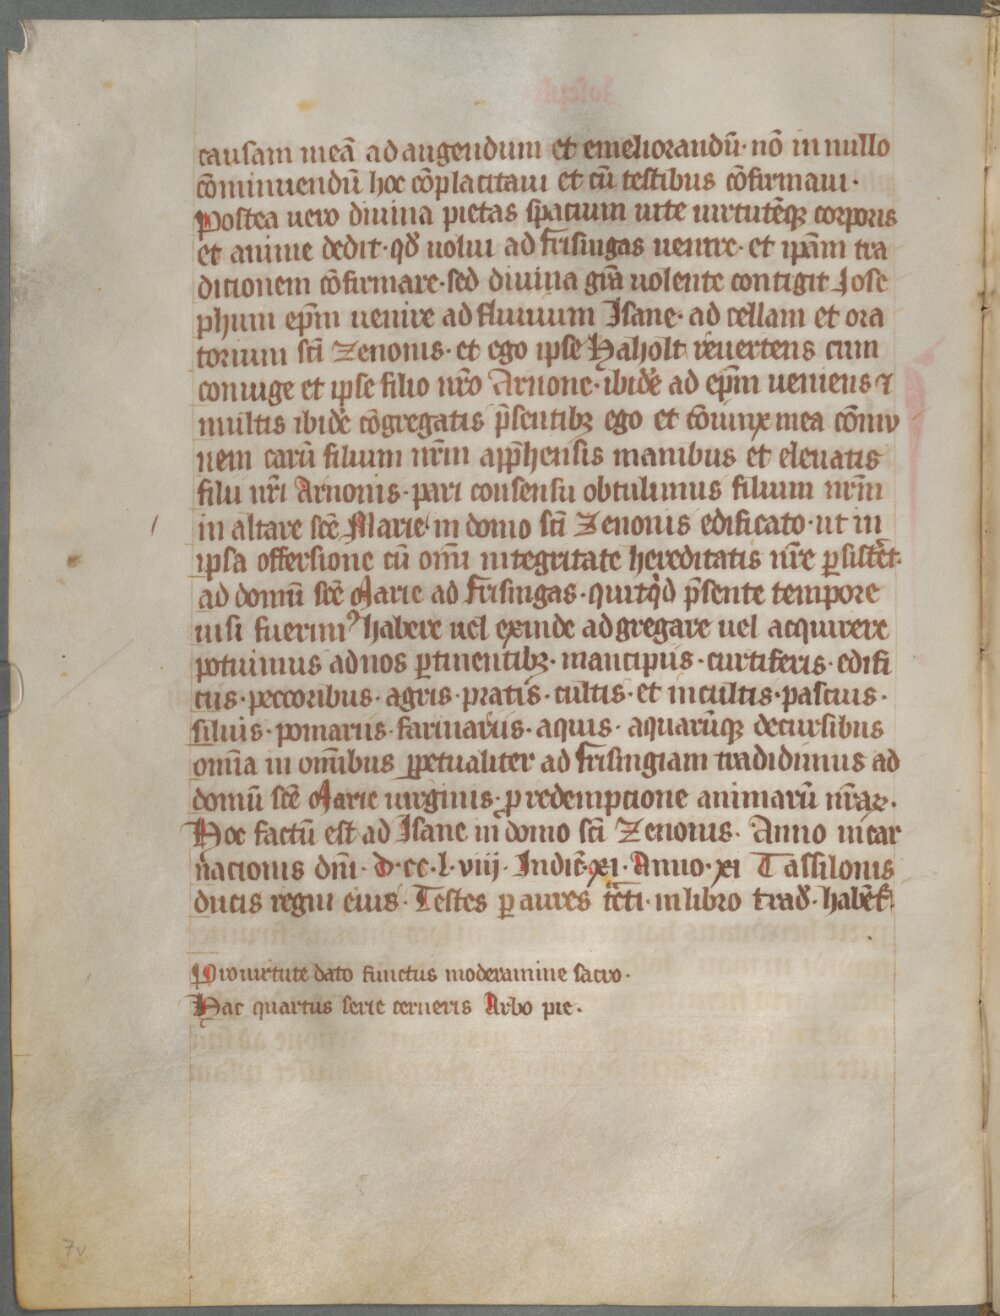 causam meā ad augendum et emeliorandū· nō in nullo
cōminuendū hoc cōplacitaui et cū testibus cōfirmaui·
Postea uero diuina pietas spacium uite uirtutēqꝫ corporis
et anime dedit· qđ uolui ad frisingas uenire· et ip̄am tra
ditionem cōfirmare· sed diuina gr̄a uolente contigit Jose
phum ep̄m uenire ad fluuium Jsane· ad cellam et ora
torium sc̄i Zenonis· et ego ipse Haholt reuertens cum
coniuge et ipse filio nr̄o Arnone· ibidē ad ep̄m ueniens ⁊
multis ibidē cōgregatis p̄sentibꝫ ego et cōiunx mea cōmu
nem carū filium nr̄m app̄hensis manibus et eleuatis
filii nr̄i Arnonis· pari consensu obtulimus filium nr̄m
in altare sc̄e Marie in domo sc̄i Zenonis edificato· ut in
ipsa offersione cū om̄i integritate hereditatis nr̄e ꝑsistet·
ad domū sc̄e Marie ad frisingas· quitqđ p̄sente tempore
uisi fuerimꝰ habere uel exinde adgregare uel acquirere
potuimus ad nos ꝑtinentibꝫ· mancipiis· curtiferis· edifi
ciis· peccoribus· agris· pratis· cultis· et incultis· pascuis·
siluis· pomariis· farinariis· aquis· aquarūqꝫ decursibus
omīa in om̄ibus ꝑpetualiter ad frisingiam tradidimus ad
domū sc̄e Marie uirginis· ꝓ redemptione animarū nr̄aꝝ·
Hoc factū est ad Jsane in domo sc̄i Zenonis· Anno incar
nacionis dn̄i· d·cc·l·viij· Jndic̄·xi· Anno·xi Tassilonis
ducis regni eius· Testes ꝑ aures tc̄ti· in libro trad̄· habēt·
Pro uirtute dato functus moderamine sacro·
Hac quartus serie cerneris Arbo pie·
7v